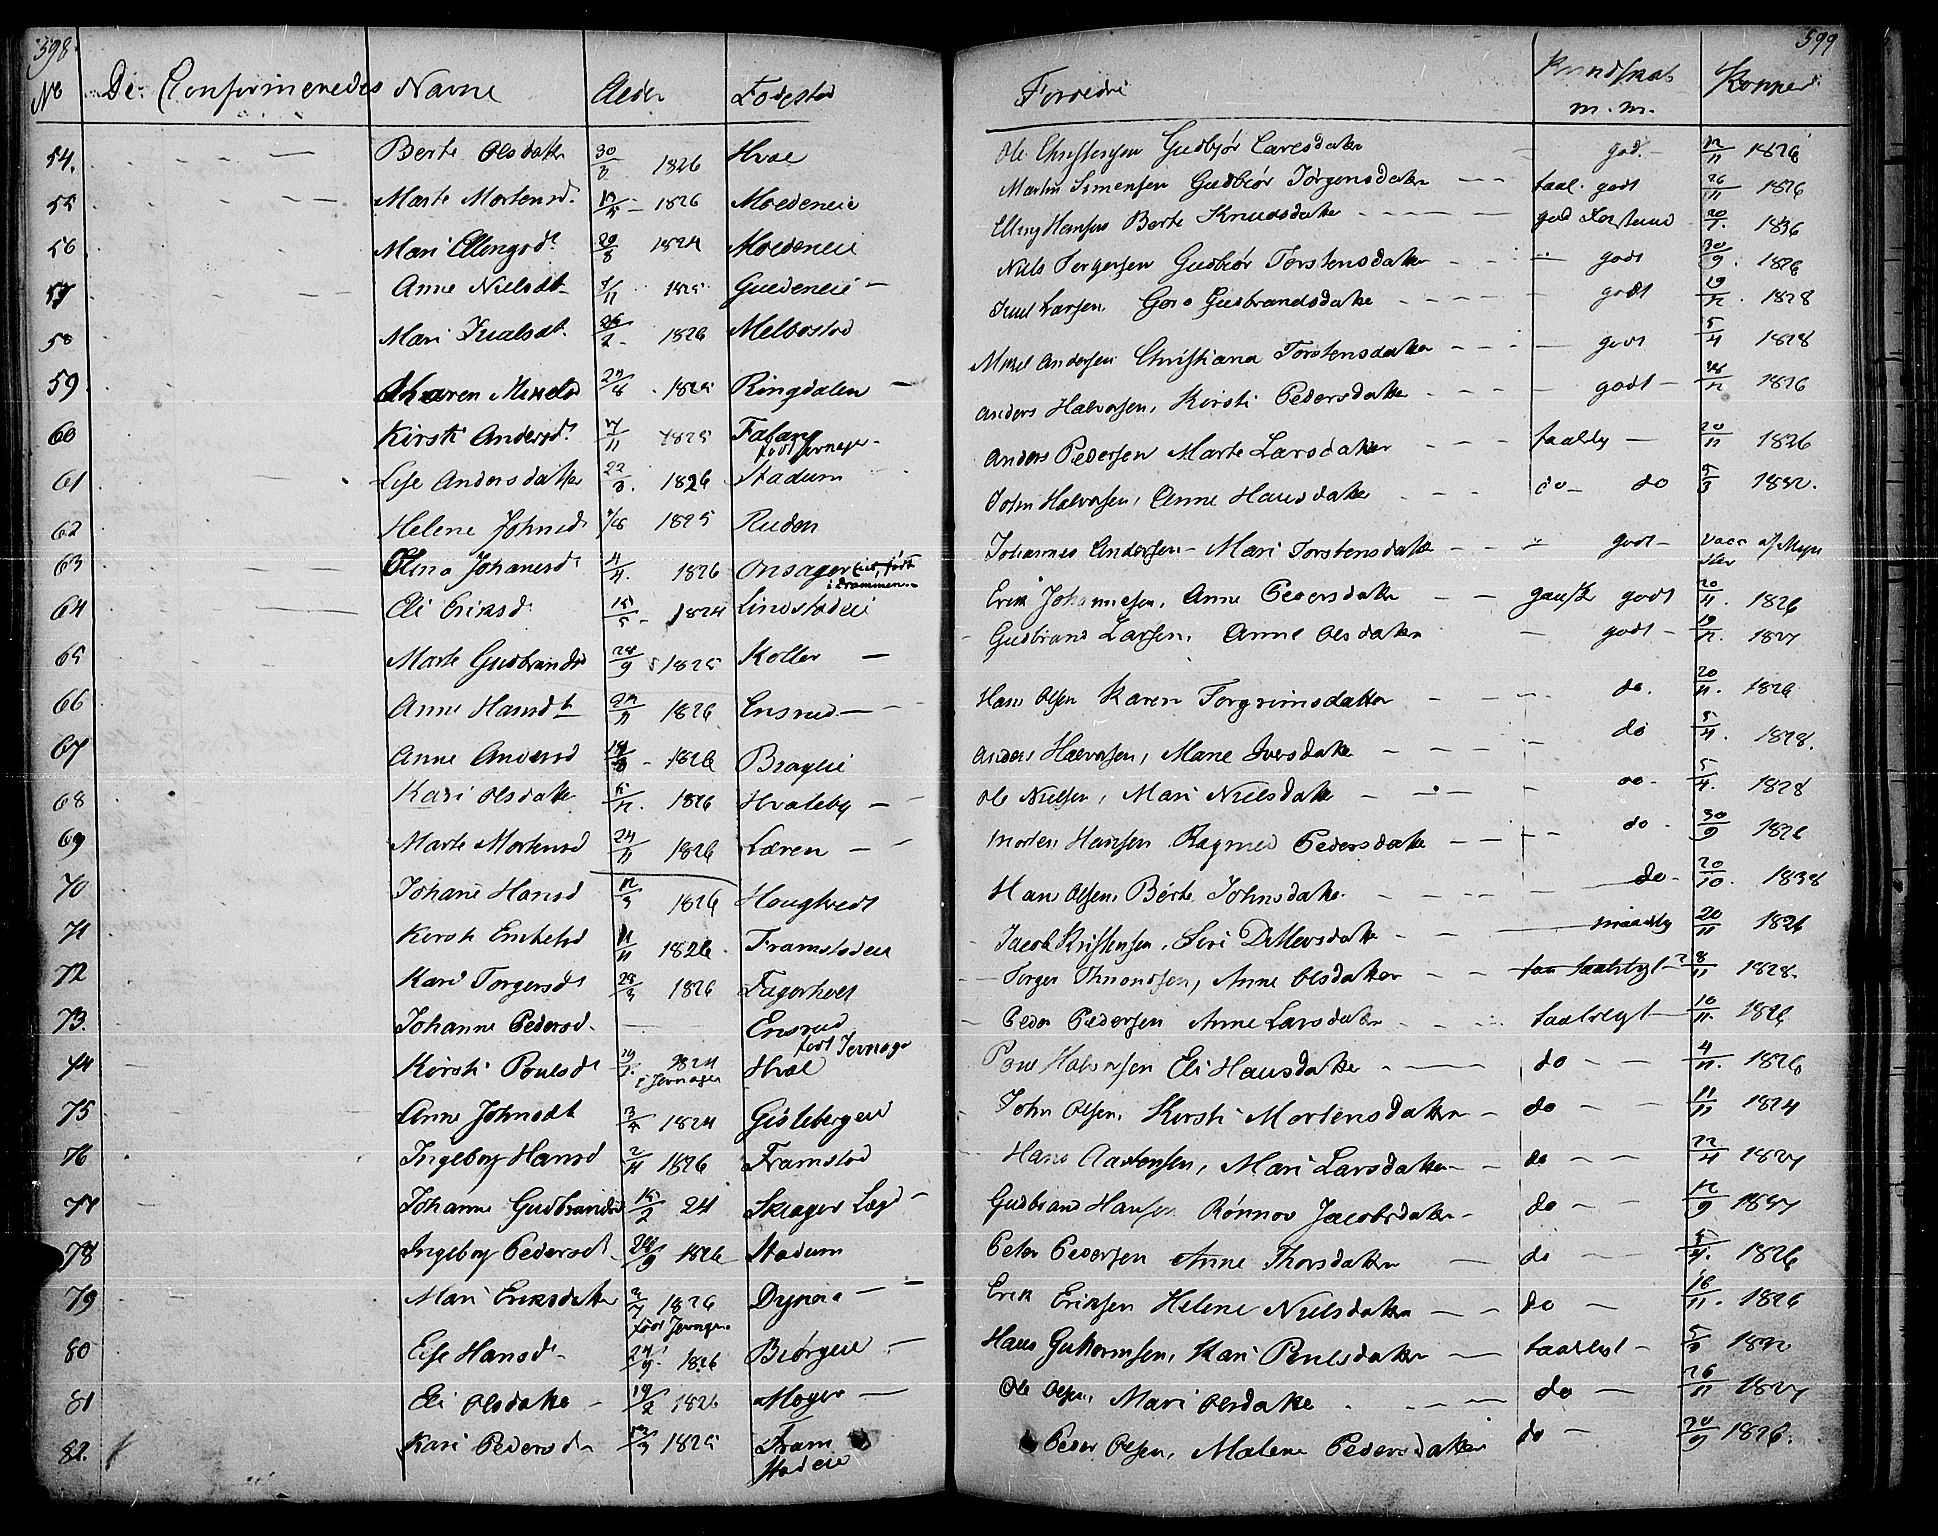 598
No De Confirmeredes Navne Alder Fødested
54. Berte Olsdatter 30/3 1826 Hval
55 Marte Mortensd. 1826 Moedeneie
56 Mari Ellengsdt 29/8 1824 Moedeneie
57 Anne Nielsdt 1825 Guedeneie
58 Mari Iualsdt. 26/2 1826 Melbostad
59. 1825 Ringdalen
60 Kirsti Andersd. 1825 Fafang
født Jevnager
61 Lise Andersdatter 22/3. 1826 Stadum
62 Helene Johnsd 1825 Ruden
63 Olina Johanesdt 4/4. 1826 Onsager eie, født
i Drammen
64 Eli Eriksd. 15/5 1824 Lindstadeie
65 Marte Gudbrandsd 28/9 1825 Koller
66 Anne Hansdt 1826 Ensrud
67 Anne Andersd 1826 Brageeie
68 Kari Olsdatter 1826 Hvaleby
69 Marte Mortensd 24/11 1826 Læren
70 Johane Hansd 12/3 1826 Haugtvedt
71 Kirsti 11/11 1826 Framstadeie
72 Kari Torgersdt 28/3 1826 Fagerholt
73. Johanne Pedersd. Ensrud
født Jevnager
74 Kirsti Poulsdt 19/1. 1824 Hval
i Jevnager
75 Anne Johnsdt 1824 Gislebergeie
76 Ingeborg Hansd 2/11 1826 Framstad
77 Johanne Gudbrandsd 15/2 24 Skiager Lægd
78 Ingeborg Pedersdt 28/9 1826 Stadum
79 Mari Eriksdatter 1826 Dynna
født Jevnager
80 Lise Hansdt 24/9 1826 Biørgeie
81 Eli Olsdatter 19/2 1826 Moger
82. Kari Pedersd 1825 Fram
stadeie
599
Forældre Kundskab
m. m. Kopper
Ole Christensen Gudbjør Larsdatter god. 12/11 1826
Martin Simensen Gudbiør Jørgensdatter taal. godt 26/11 1826
Elling Hansen Berte Knudsdatter god Forstand 20/7. 1836
Niels Torgersen Gudbiør Torstensdatter godt 30/9. 1826
Iuul Larsen Goro Gudbrandsdatter godt 19/12. 1828
Mikel Andersen Christiana Torstensdatter godt 5/4 1828
Anders Halvorsen, Kirsti Pedersdatter godt 28/12 1826
Anders Pedersen Marte Larsdatter taaelig 20/11 1826
John Halvorsen, Anne Hansdatter do do 5/3 1832.
Johannes Andersen Mari Torstensdatter godt Vacc af
Erik Johannesen, Anne Pedersdatter ganske godt 20/11. 1826
Gudbrand Larsen, Anne Olsdatter godt 19/12. 1827
Hans Olsen Karen Torgrimsdatter do. 20/11. 1826
Anders Halvorsen, Marie Iversdatter do 5/4. 1828.
Ole Nielsen, Mari Nielsdatter do 5/4. 1828
Morten Hansen Ragnild Pedersdatter do 30/9 1826
Hans Olsen, Berte Johnsdatter. do 20/10. 1838
Jacob Kristensen, Siri Ditlevsdatter maadelig 20/11 1826
Torger Amondsen, Anne Olsdatter 8/11 1828.
Peder Pedersen Anne Larsdatter taaleligt 10/11. 1826
Poul Halvorsen Eli Hansdatter do 4/11. 1826
John Olsen, Kirsti Mortensdatter do 11/11 1824
Hans Aastensen, Mari Larsdatter do 22/4 1827
Gudbrand Hansen Rønnov Jacobsdatter do 12/9 1837
Peter Pedersen Anne Thorsdatter do 5/4. 1826
Erik Eriksen Helene Nielsdatter do 16/11. 1826
Hans Guttormsen, Kari Poulsdatter taaleligt 5/3 1832
Ole Olsen, Mari Olsdatter do 26/11 1827
Peder Olsen, Malene Pedersdatter do 20/9 1826.